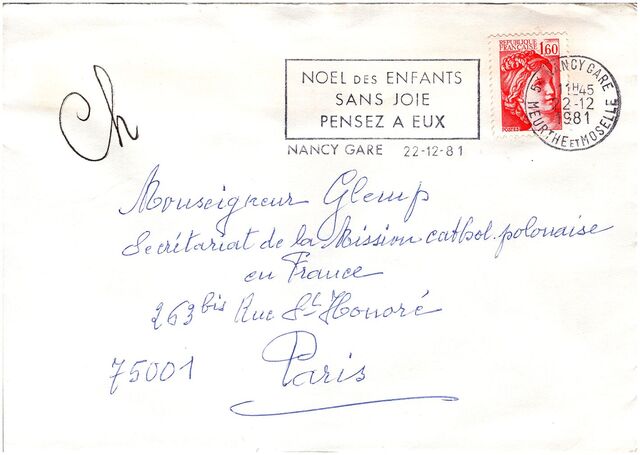 NOEL DES ENFANTS
SANS JOIE
PENSEZ A EUX
NANCY GARE 22-12-81
REPUBLIQUE
FRANÇAISE 1,60
POSTES
NANCY GARE
11H45
2-12
1981
MEURTHE ET MOSELLE
Ch
Monseigneur Glemp
Secrétariat de la Mission cathol. polonaise
en France
263 bis Rue St Honoré
75001 Paris